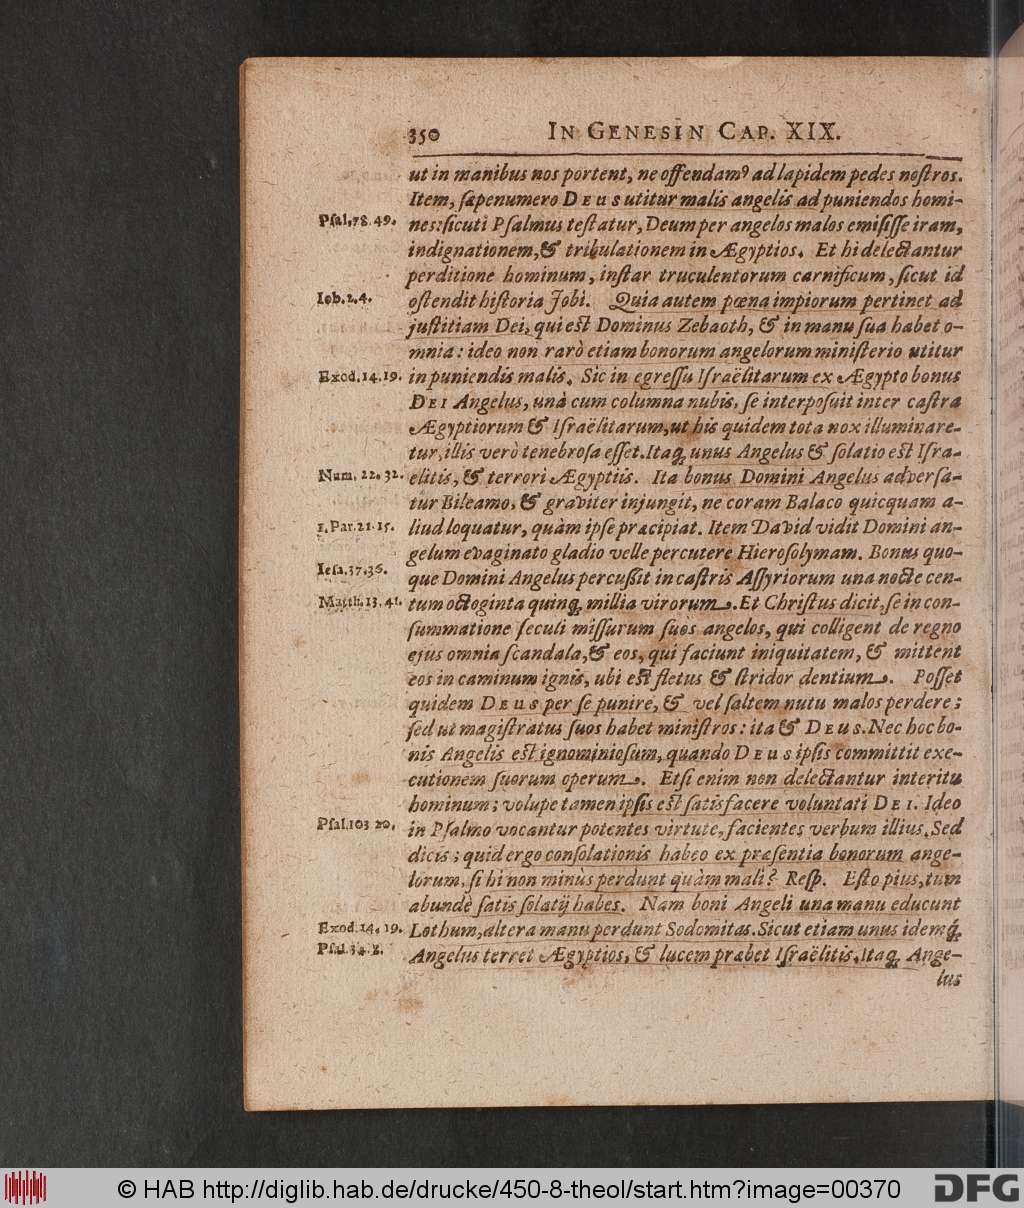 350 IN GENESIN CAP. XIX.
ut in manibus nos portent, ne offendamꝰ ad lapidem pedes nostros.
Item, sæpenumero DEUS utitur malis angelis ad puniendos homi-
Psal. 78. 49. nes: sicuti Psalmus testatur, Deum per angelos malos emisisse iram,
indignationem, & tribulationem in Ægyptios. Et hi delectantur
perditione hominum, instar truculentorum carnificum, sicut id
Iob. 2. 4. ostendit historia Jobi. Quia autem pœna impiorum pertinet ad
justitiam Dei, qui est Dominus Zebaoth, & in manu sua habet o-
mnia: ideo non rarò etiam bonorum angelorum ministerio utitur
Exod. 14. 19. in puniendis malis. Sic in egressu Israëlitarum ex Ægypto bonus
DEI Angelus, unà cum columna nubis, se interposuit inter castra
Ægyptiorum & Israëlitarum, ut his quidem tota nox illuminare-
tur, illis verò tenebrosa esset. Itaq; unus Angelus & solatio est Isra-
Num. 22. 32. elitis, & terrori Ægyptiis. Ita bonus Domini Angelus adversa-
tur Bileamo, & graviter injungit, ne coram Balaco quicquam a-
1. Par. 21. 15. liud loquatur, quàm ipse præcipiat. Item David vidit Domini an-
gelum evaginato gladio velle percutere Hierosolymam. Bonus quo-
Iesa. 37. 36. que Domini Angelus percussit in castris Assyriorum una nocte cen-
Matth. 13. 41. tum octoginta quinq; millia virorum. Et Christus dicit, se in con-
summatione seculi missurum suos angelos, qui colligent de regno
ejus omnia scandala, & eos, qui faciunt iniquitatem, & mittent
eos in caminum ignis, ubi est fletus & stridor dentium. Posset
quidem DEUS per se punire, & vel saltem nutu malos perdere;
sed ut magistratus suos habet ministros: ita & DEUS. Nec hoc bo-
nis Angelis est ignominiosum, quando DEUS ipsis committit exe-
cutionem suorum operum. Etsi enim non delectantur interitu
hominum; volupe tamen ipsis est satisfacere voluntati DEI. Ideo
Psal. 103 20. in Psalmo vocantur potentes virtute, facientes verbum illius. Sed
dicis; quid ergo consolationis habeo ex præsentia bonorum ange-
lorum, si hi non minùs perdunt quàm mali? Resp. Esto pius, tum
abundè satis solatij habes. Nam boni Angeli una manu educunt
Exod. 14. 19. Lothum, altera manu perdunt Sodomitas. Sicut etiam unus idemq;
Psal. 34. 8. Angelus terret Ægyptios, & lucem præbet Israëlitis. Itaq; Ange-
lus
© HAB http://diglib.hab.de/drucke/450-8-theol/start.htm?image=00370 DFG